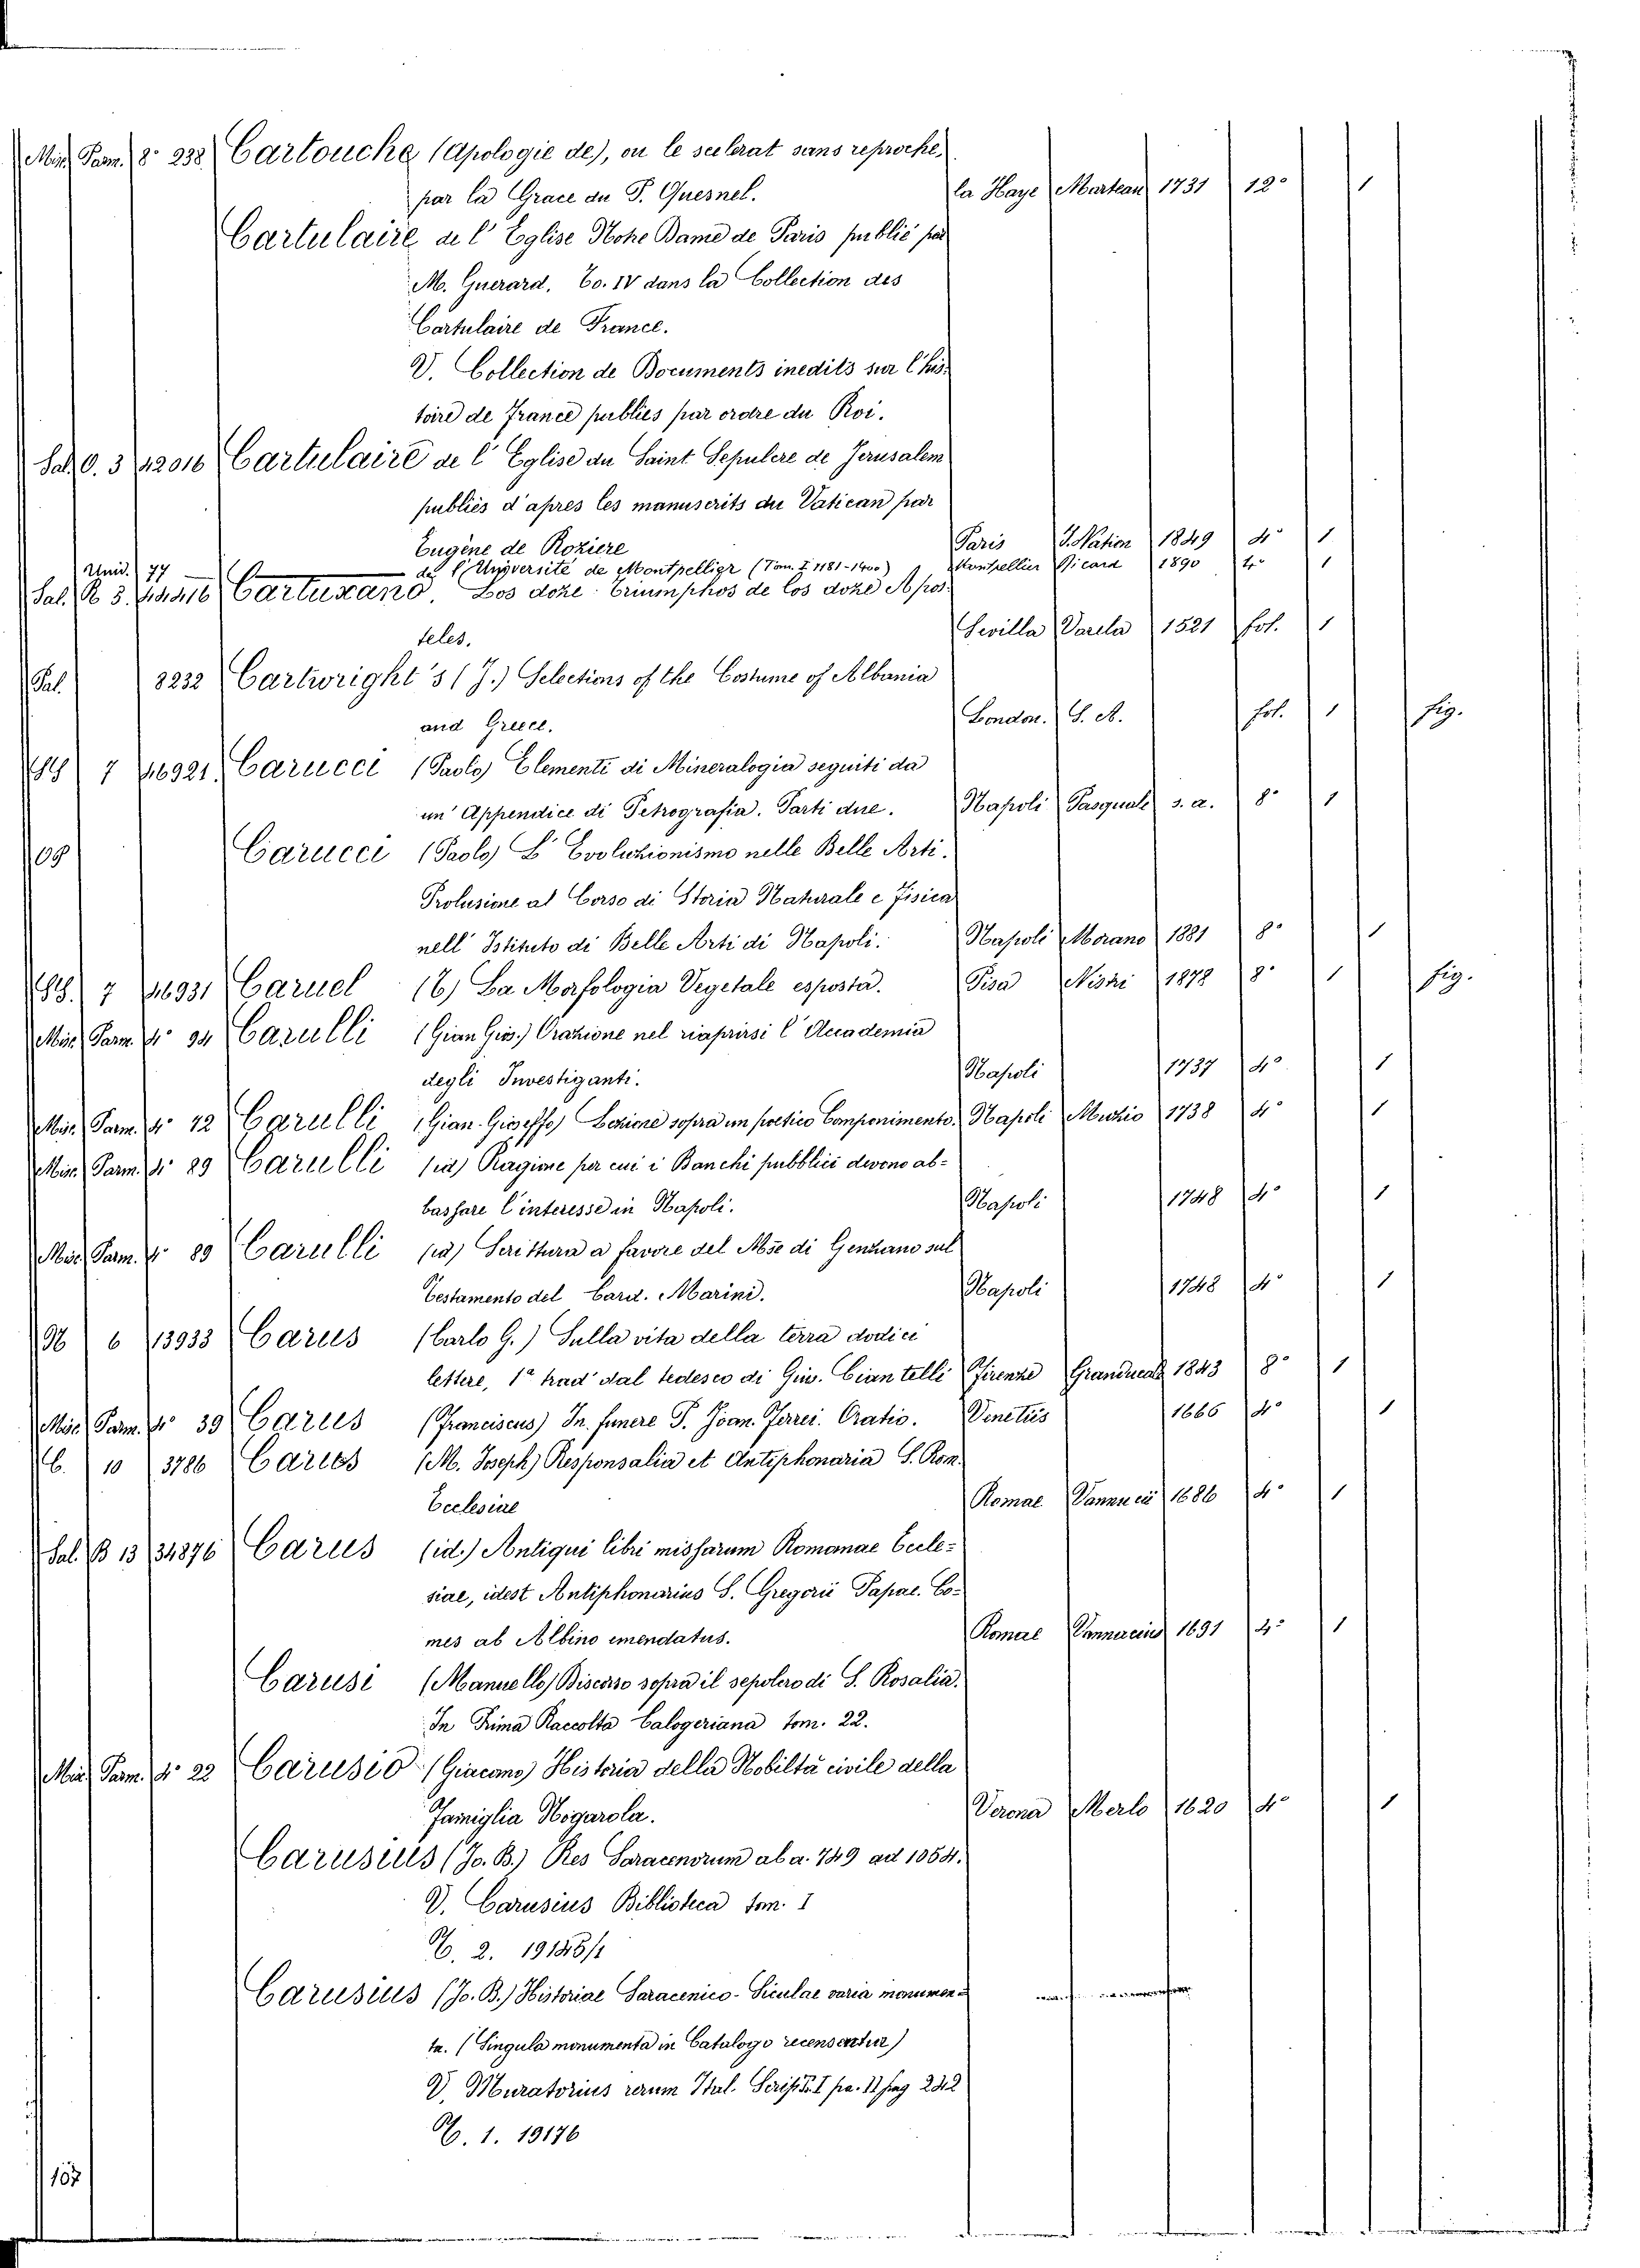 Mis. Pam. 8° 238 Cartouche (Apologie de), ou le scelerat sans reproche,
par la Grace du P. Quesnel. la Haye Marteau 1731 12° 1
Cartulaire de l' Eglise Notre Dame de Paris publié par
M. Guerard. To. IV dans la Collection des
Cartulaire de France.
V. Collection de Documents inedits sur l'his-
toire de France publies par ordre du Roi.
Sal. O. 3 42016 Cartulaire de l' Eglise du Saint Sepulcre de Jerusalem
publiés d'apres les manuscrits du Vatican par
Eugène de Roziere Paris I. Nation 1849 4° 1
Unid. 77 — de l'Université de Montpellier (Tom. I 1181-1400) Montpellier Picard 1890 4° 1
Sal. R 3. Cartuxano. Los doze triumphos de los doze Apos-
teles. Sevilla Varela 1521 fol. 1
Sal. 8232 Cartwright's (J.) Selections of the Costume of Albania
and Greece. London. S. A. fol. 1 fig.
7 46921 Carucci (Paolo) Elementi di Mineralogia seguiti da
un' Appendice di Petrografia. Parti due. Napoli Pasquale s. a. 8° 1
Carucci (Paolo) L' Evoluzionismo nelle Belle Arti.
Prolusione al Corso di Storia Naturale e Fisica
nell' Istituto di Belle Arti di Napoli. Napoli Morano 1881 8° 1
7 46931 Caruel (T.) La Morfologia Vegetale esposta. Pisa Nistri 1878 8° 1 fig.
Mis. Parm. 4° 94 Carulli (Gian Gius.) Orazione nel riaprirsi l' Accademia
degli Investiganti. Napoli 1737 4° 1
Mis. Parm. 4° 12 Carulli (Gian Gioseffo) Lezione sopra un poetico Componimento. Napoli Muzio 1738 4° 1
Mis. Parm. 4° 89 Carulli (id) Ragione per cui i Banchi pubblici devono ab-
bassare l'interesse in Napoli. Napoli 1748 4° 1
Mis. Parm. 4° 89 Carulli (id) Scrittura a favore del Mse di Genzano sul
Testamento del Card. Marini. Napoli 1748 4° 1
6 13933 Carus (Carlo G.) Sulla vita della terra dodici
lettere, 1ª trad dal tedesco di Giu. Ciantelli Firenze Granducale 1843 8° 1
Mis. Parm. 4° 39 Carus (Franciscus) In funere P. Joan. Ferrei. Oratio. Venetiis 1666 4° 1
C. 10 3786 Carus (M. Joseph) Responsalia et Antiphonaria S. Rom.
Ecclesiae Romae Vannucii 1686 4° 1
Sal. B 13 34876 Carus (id.) Antiqui libri missarum Romanae Eccle-
siae, idest Antiphonarius S. Gregorii Papae. Co-
mes ab Albino emendatus. Romae Vannaccius 1691 4° 1
Carusi (Manuello) Discorso sopra il sepolcro di S. Rosalia.
In Prima Raccolta Calogeriana tom. 22.
Mis. Parm. 4° 22 Carusio (Giacomo) Historia della Nobiltà civile della
Famiglia Nogarola. Verona Merlo 1620 4° 1
Carusius (Jo. B.) Res Saracenorum ab a. 749 ad 1054.
V. Carusius Biblioteca tom. I
2. 19148/1
Carusius (Jo. B.) Historiae Saracenico-Siculae varia monumen-
ta. (Singula monumenta in Catalogo recensentur)
V. Muratorius rerum Ital. Script. T. I pa. II pag 242
1. 19176
107